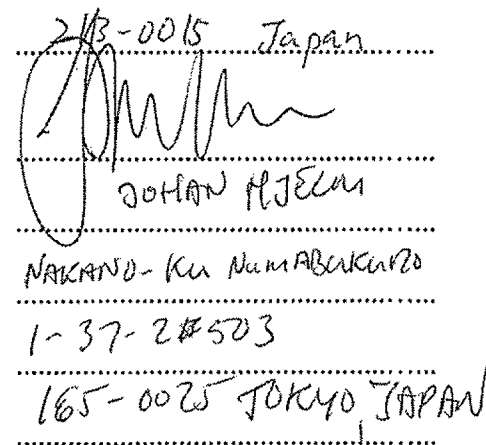 213-0015 Japan
JOHAN HJELM
NAKANO-KU NUMABUKURO
1-37-2#503
165-0025 TOKYO, JAPAN